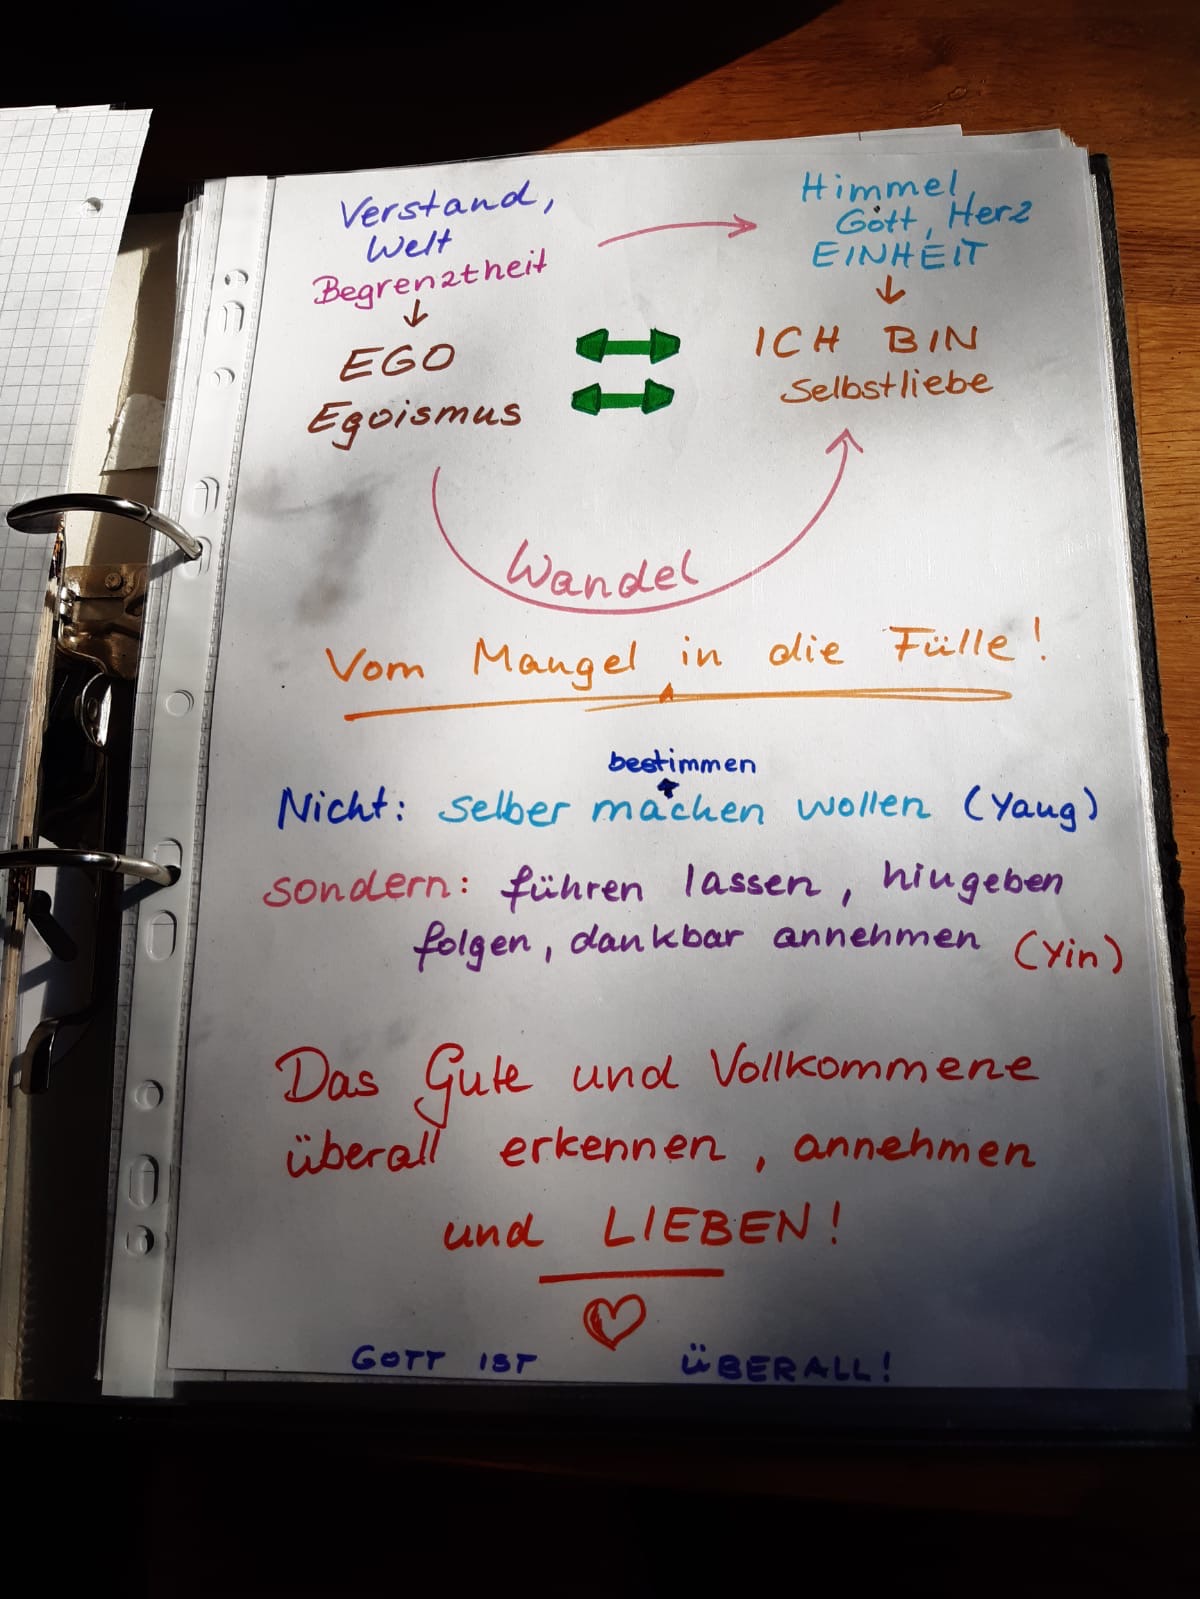 Verstand,
Welt
Begrenztheit
EGO
Egoismus
Himmel,
Gott, Herz
EINHEIT
ICH BIN
Selbstliebe
Wandel
Vom Mangel in die Fülle!
bestimmen
Nicht: selber machen wollen (Yang)
sondern: führen lassen, hingeben
folgen, dankbar annehmen (Yin)
Das Gute und Vollkommene
überall erkennen, annehmen
und LIEBEN!
GOTT IST ÜBERALL!